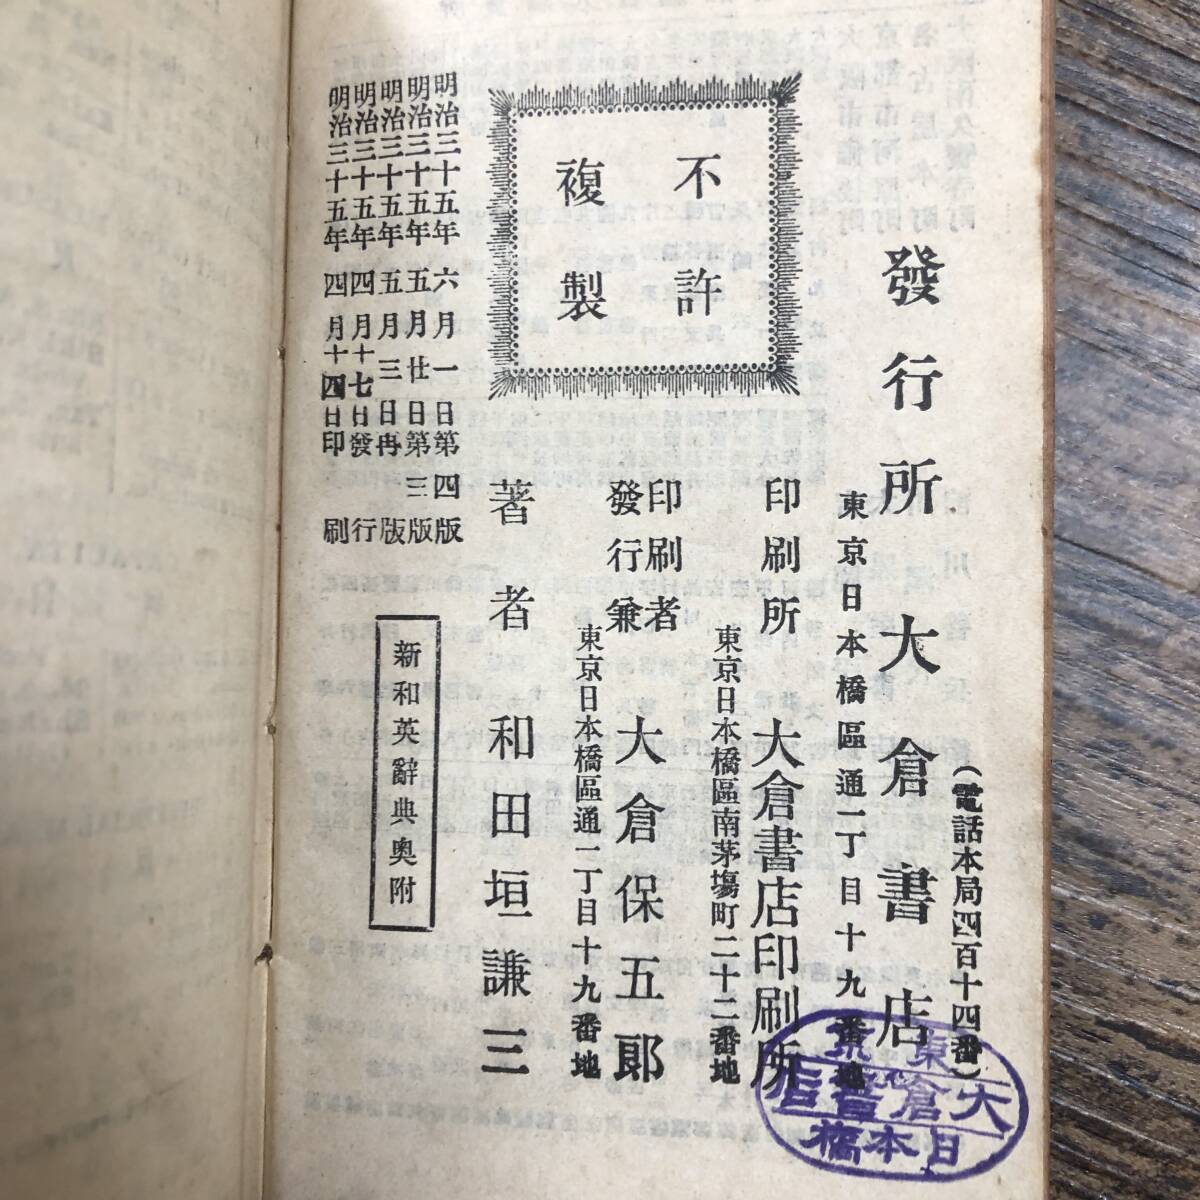 明治三十五年四月十四日印刷
明治三十五年四月十七日發行
明治三十五年五月三日再版
明治三十五年五月廿日第三版
明治三十五年六月一日第四版
不許
複製
著者 和田垣謙三
發行兼
印刷者 大倉保五郎
東京日本橋區通一丁目十九番地
印刷所 大倉書店印刷所
東京日本橋區南茅場町二十二番地
發行所 大倉書店
東京日本橋區通一丁目十九番地
(電話本局四百十四番)
新和英辭典奥附
東京
大倉書店
日本橋